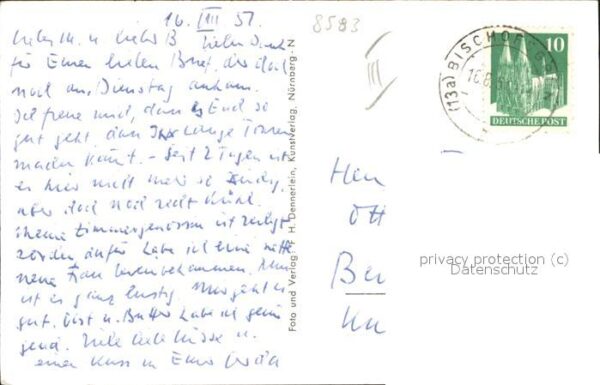 16. VIII 51.
8583
Lieber M. u. lieber B Vielen Dank
für Euren lieben Brief, der doch
noch am Dienstag ankam.
Ich freue mich, dass es Euch so
gut geht, dass Ihr lange Touren
machen könnt. - Seit 2 Tagen ist
es hier nicht mehr so windig,
aber doch noch recht kühl.
Meine Zimmergenossin ist
dafür habe ich eine nette
neue Frau bekommen. Nun
ist es ganz lustig. Mir geht es
gut. Obst u. Butter habe ich
Viele liebe Grüsse u.
einen Kuss in Eurer
Foto und Verlag: F. H. Dennerlein, Kunstverlag, Nürnberg-N
(13a) BISCHOF
16.8.51
10
DEUTSCHE POST
Herr
Ott
Ber
privacy protection (c)
Datenschutz